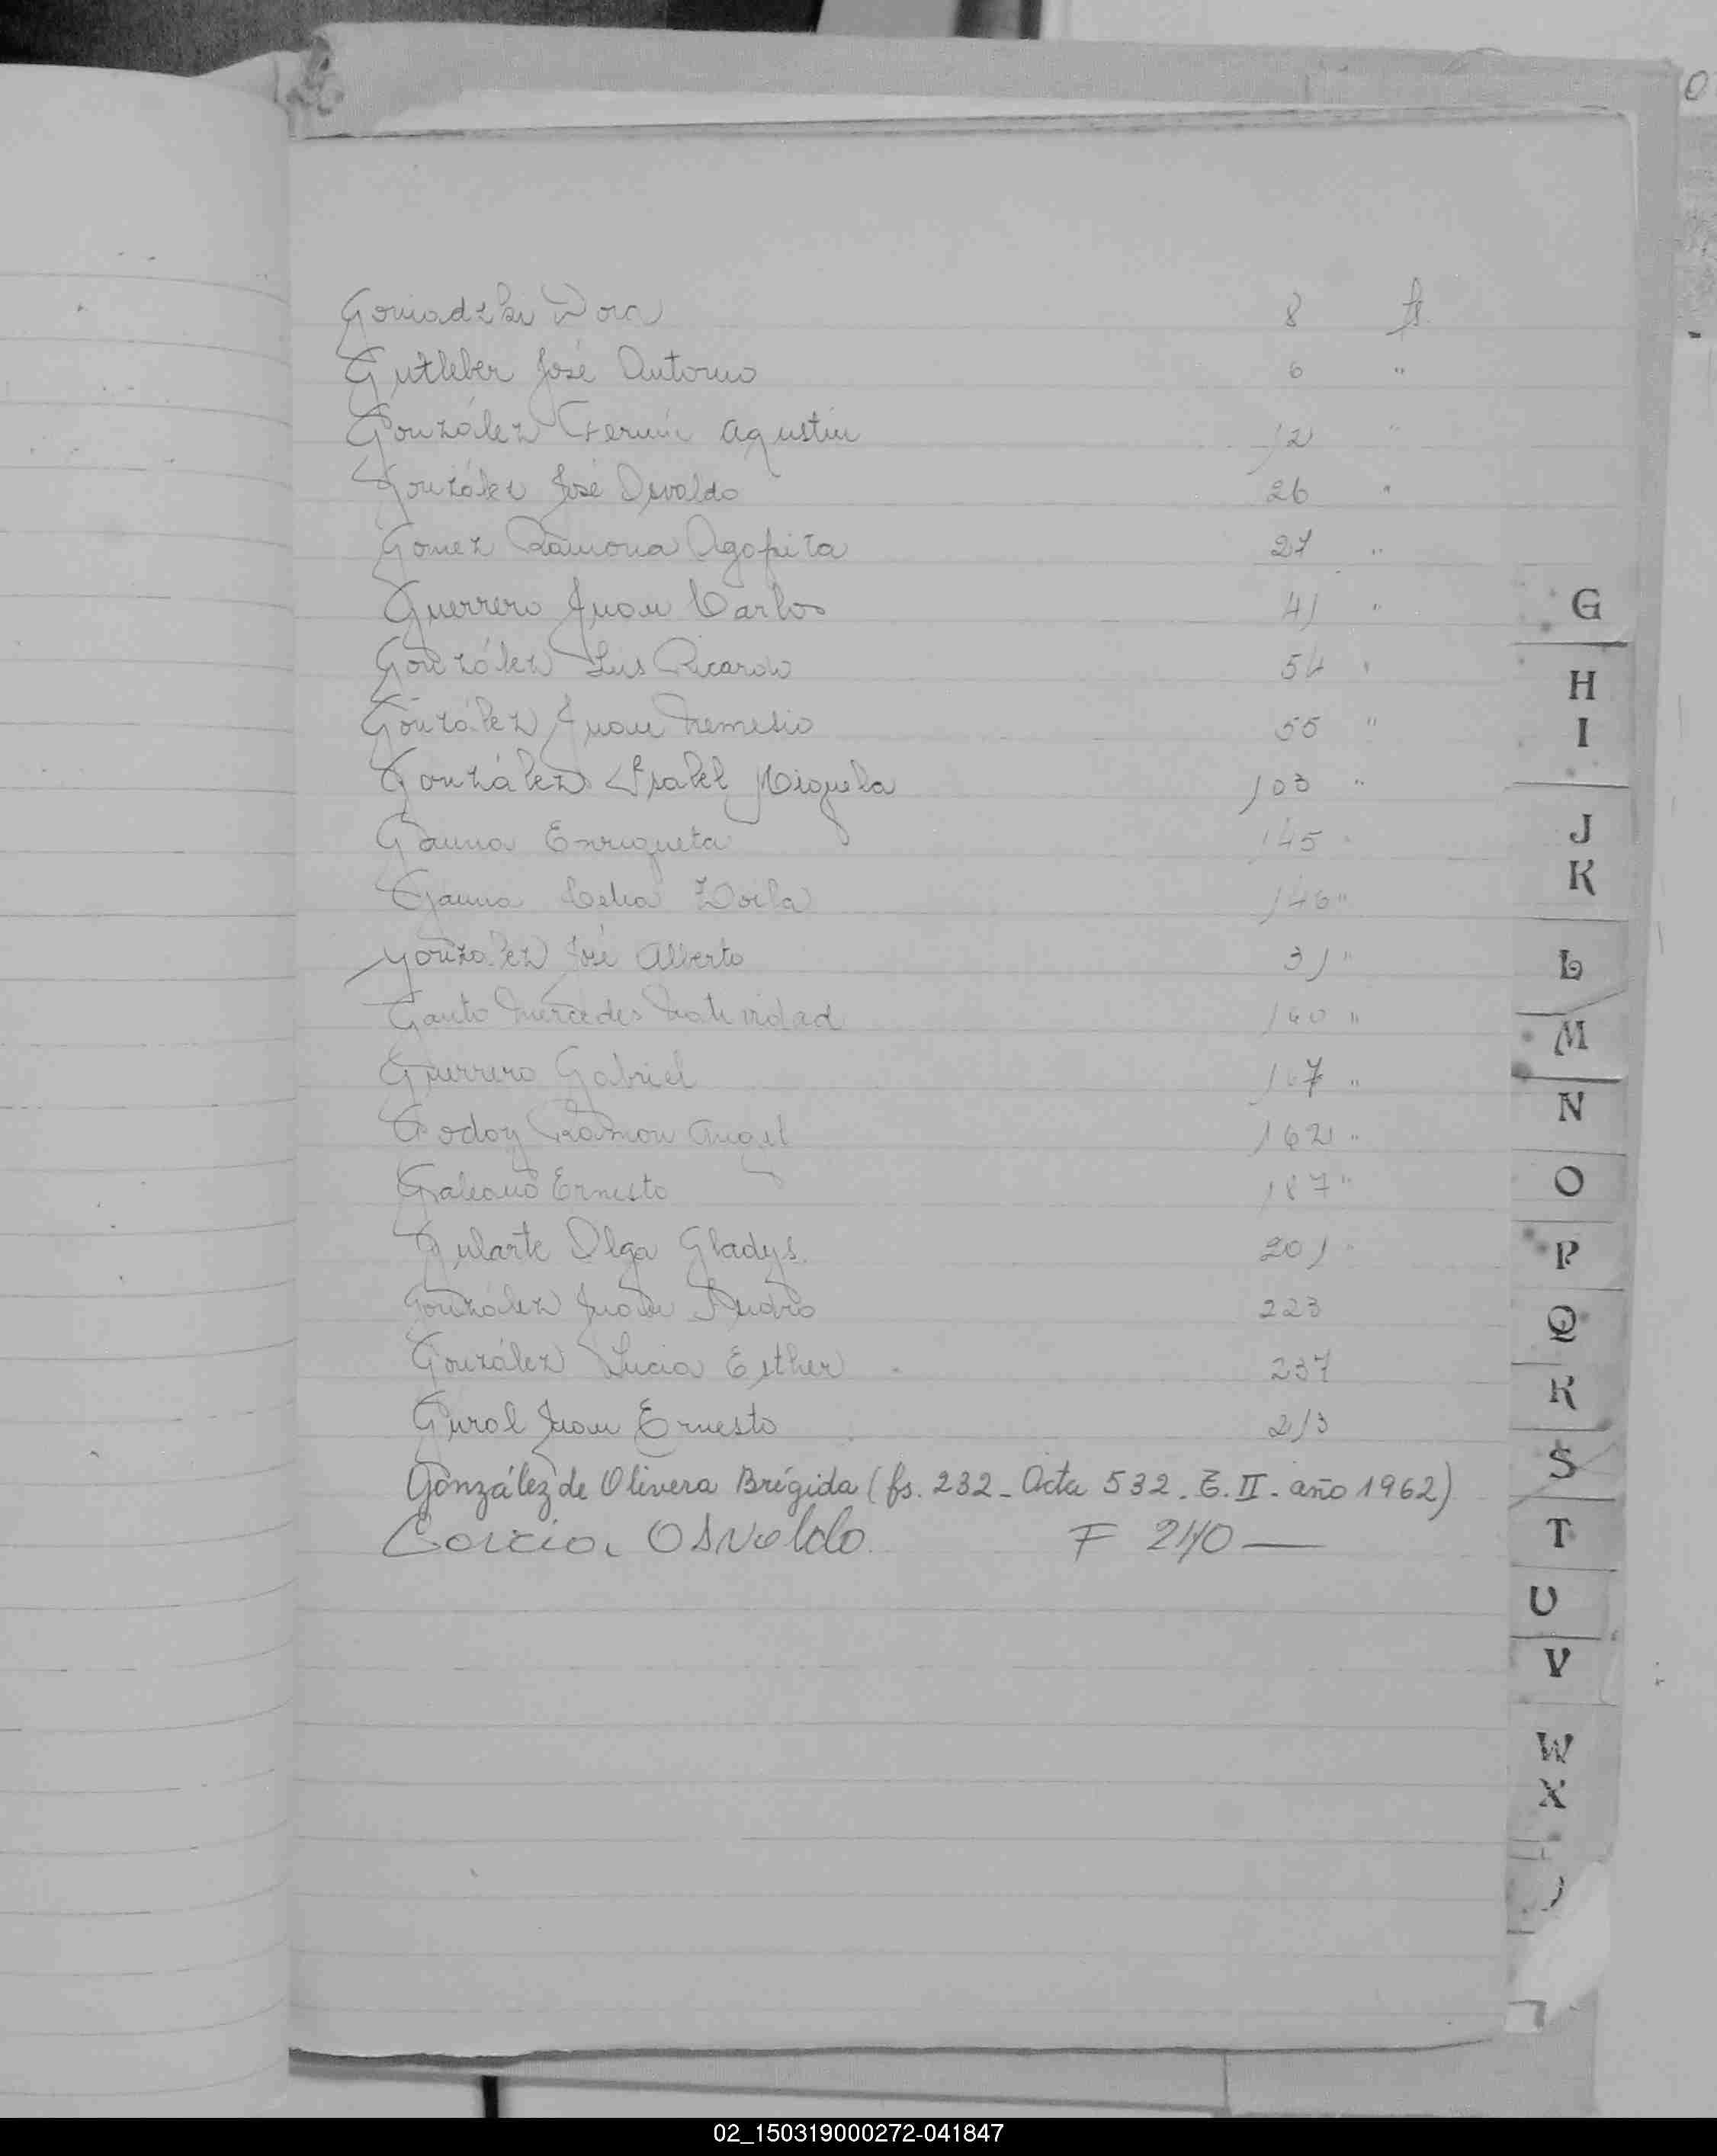 Goniadzki Dora 8 fs
Gutleber José Antonio 6 "
González Fermín Agustin 12 "
González José Osvaldo 26 "
Gomez Ramona Agapita 27 "
Guerrero Juan Carlos 41 "
González Luis Ricardo 54 "
González Juan Nemesio 55 "
González Isabel Miguela 103 "
Gauna Enriqueta 145 "
Gauna Celia Zoila 146 "
González José Alberto 31 "
Gauto Mercedes Natividad 160 "
Guerrero Gabriel "
Godoy Ramon Angel 162 "
Galeano Ernesto 187 "
Gularte Olga Gladys. 201 "
González Juan 223
González Lucia Esther 237
Gurol Juan Ernesto 213
González de Olivera Brígida (fs. 232 - Acta 532 - T. II - año 1962)
Garcia Osvaldo F 240 —
G
H
I
J
K
L
M
N
O
P
Q
R
S
T
U
V
W
X
02_150319000272-041847